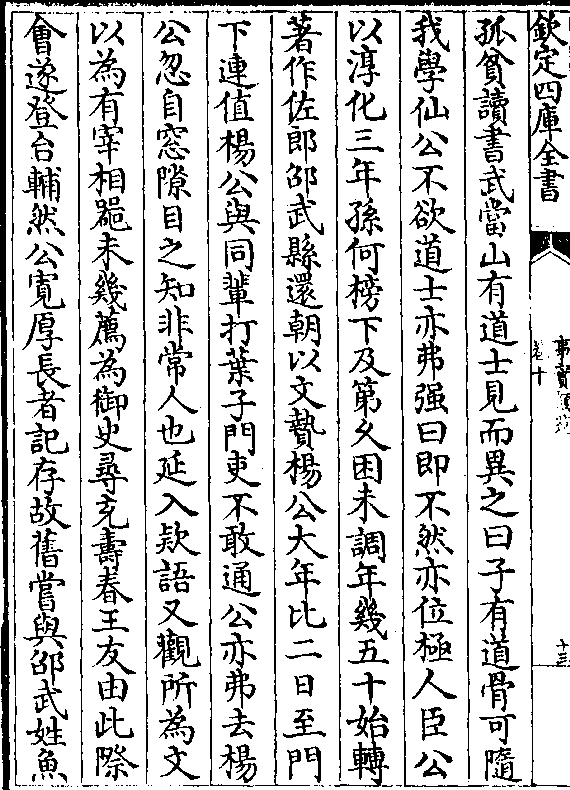 欽定四庫全書
事實類苑
卷十
十三
孤貧讀書武當山有道士見而異之曰子有道骨可隨
我學仙公不欲道士亦弗强曰即不然亦位極人臣公
以淳化三年孫何榜下及第乆困未調年幾五十始轉
著作佐郎邵武縣還朝以文贄楊公大年比二日至門
下連值楊公與同輩打葉子門吏不敢通公亦弗去楊
公忽自窓隙目之知非常人也延入欵語又觀所為文
以為有宰相噐未幾薦為御史尋充壽春王友由此際
會遂登台輔然公寛厚長者記存故舊嘗與邵武姓魚